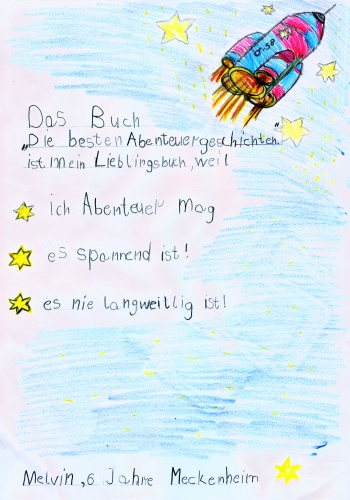 Das Buch
„Die besten Abenteuergeschichten"
ist mein Lieblingsbuch, weil
ich Abenteuer mag
es spannend ist!
es nie langweillig ist!
Melvin, 6 Jahre Meckenheim